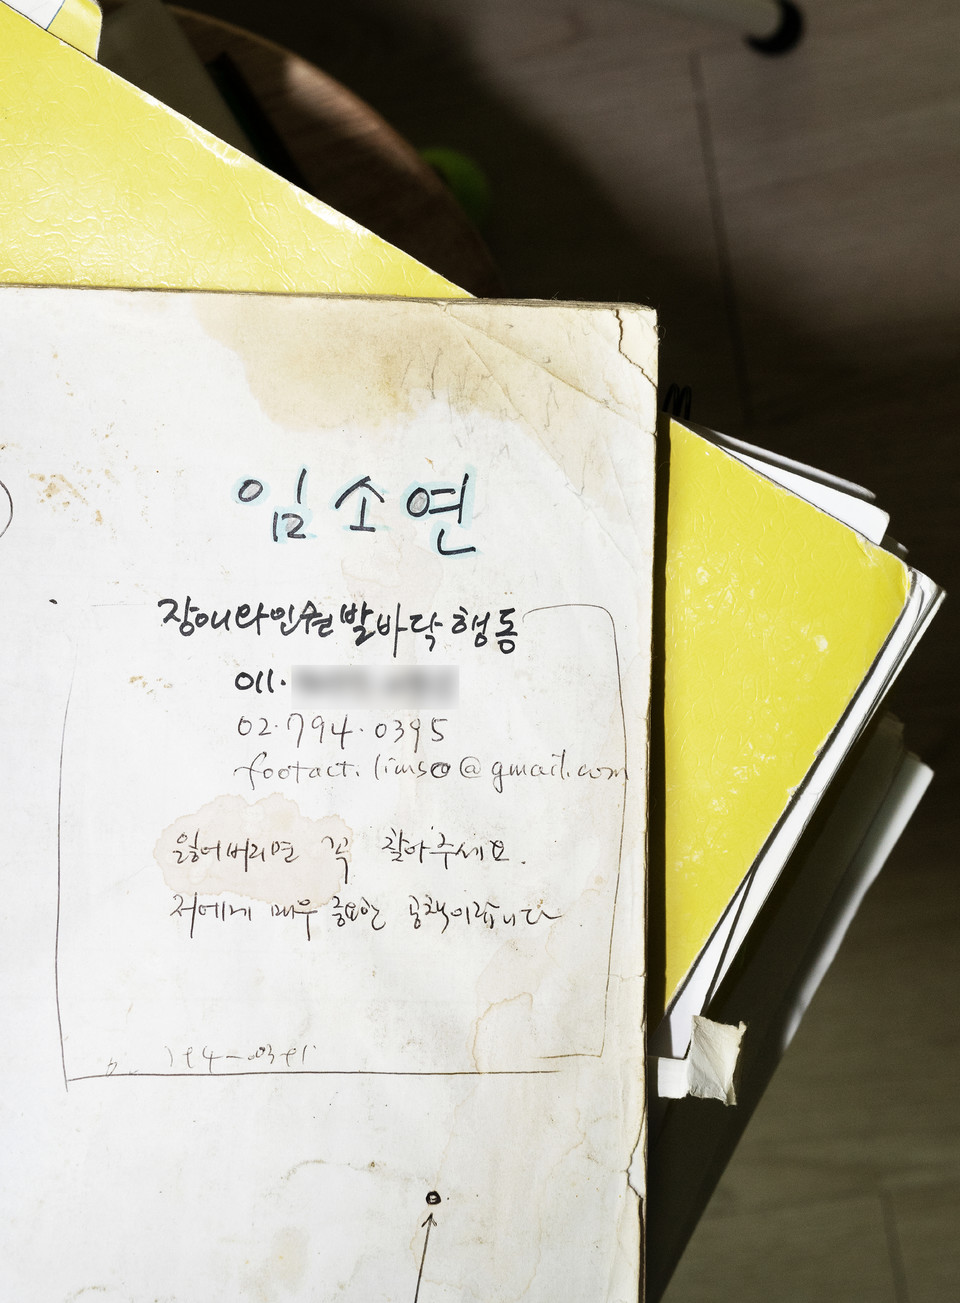 임소연
장애와인권발바닥행동
011.
02.794.0395
footact.limso@gmail.com
잃어버리면 꼭 찾아주세요.
저에게 매우 중요한 공책이랍니다
794-0395